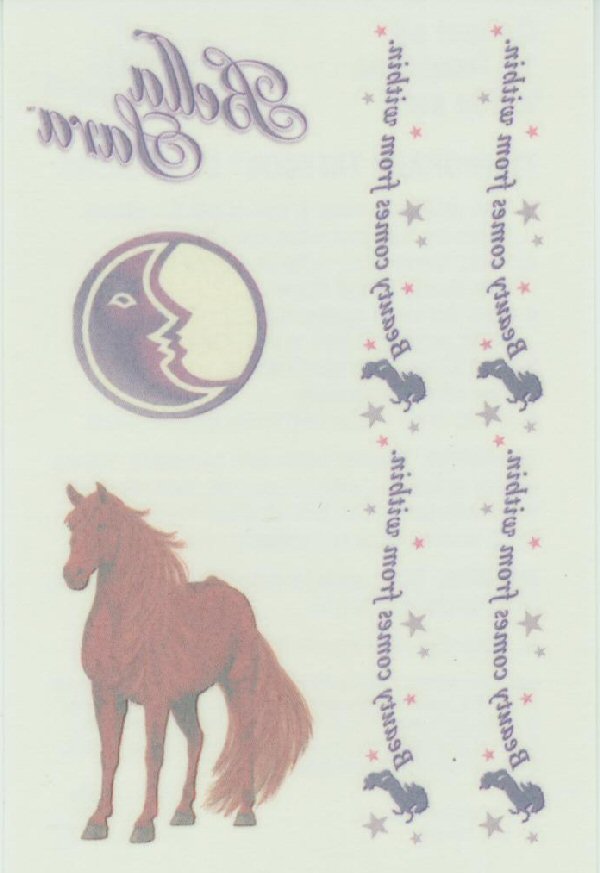 Bella
Sara™
Beauty comes from within.
Beauty comes from within.
Beauty comes from within.
Beauty comes from within.